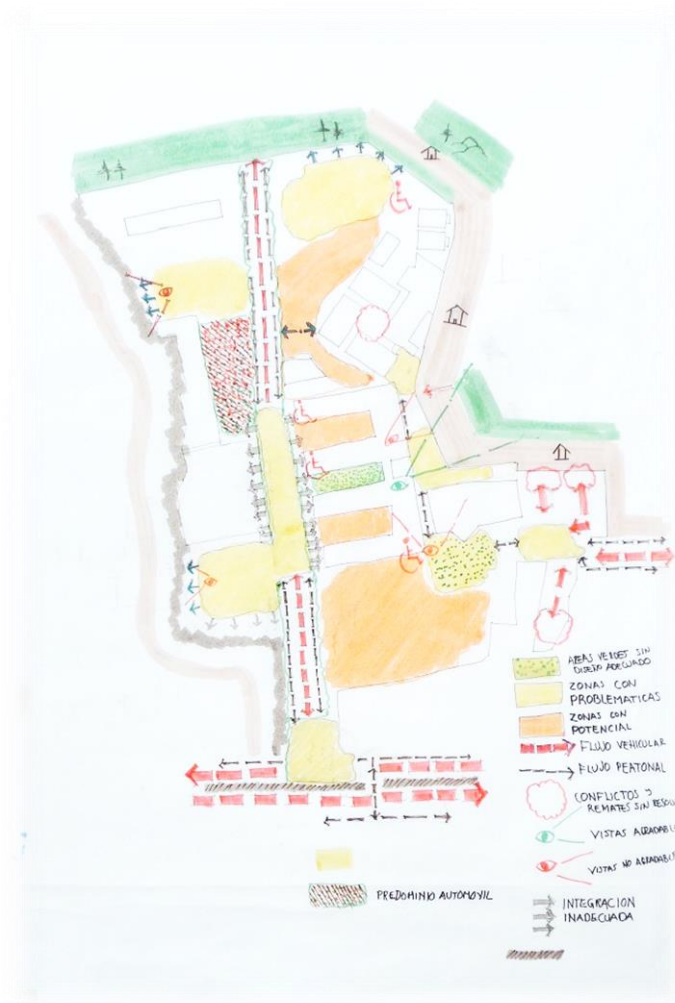 AREAS VERDES SIN
DISEÑO ADECUADO
ZONAS CON
PROBLEMATICAS
ZONAS CON
POTENCIAL
FLUJO VEHICULAR
FLUJO PEATONAL
CONFLICTOS Y
REMATES SIN
VISTAS
VISTAS NO
PREDOMINIO AUTOMOVIL
INTEGRACION
INADECUADA